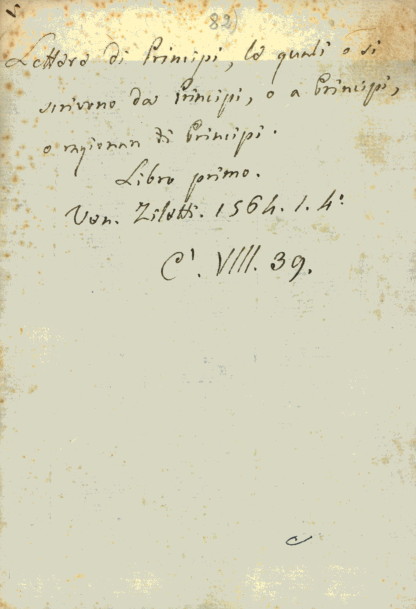 82)
Lettere di Principi, le quali o si
scrivono da Principi, o a Principi,
o ragionan di Principi.
Libro primo.
Ven. Ziletti. 1564. 1. 4.º
C'. VIII. 39.